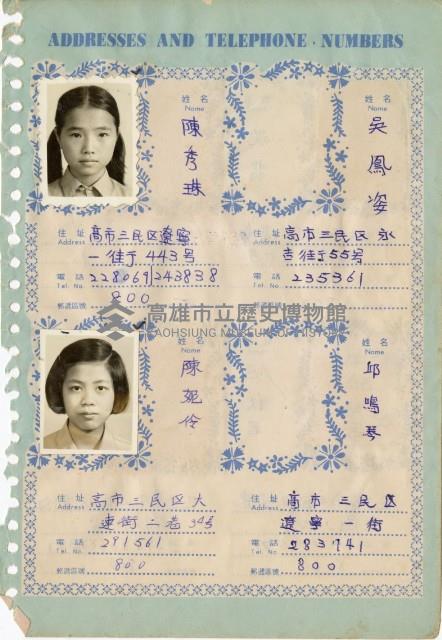 ADDRESSES AND TELEPHONE · NUMBERS
姓名
Name
陳秀珠
住址 高市三民区遼寧
Address
一街 443号
電話 228069 243838
Tel. No.
郵遞區號 800
姓名
Name
吳鳳姿
住址 高市三民区永
Address
吉街 55号
電話 235361
Tel. No.
郵遞區號
高雄市立歷史博物館
KAOHSIUNG MUSEUM OF HISTORY
姓名
Name
陳妮伶
住址 高市三民区大
Address
連街二巷 34号
電話 291561
Tel. No.
郵遞區號 800
姓名
Name
邱鳴琴
住址 高市三民区
Address
遼寧一街
電話 283741
Tel. No.
郵遞區號 800